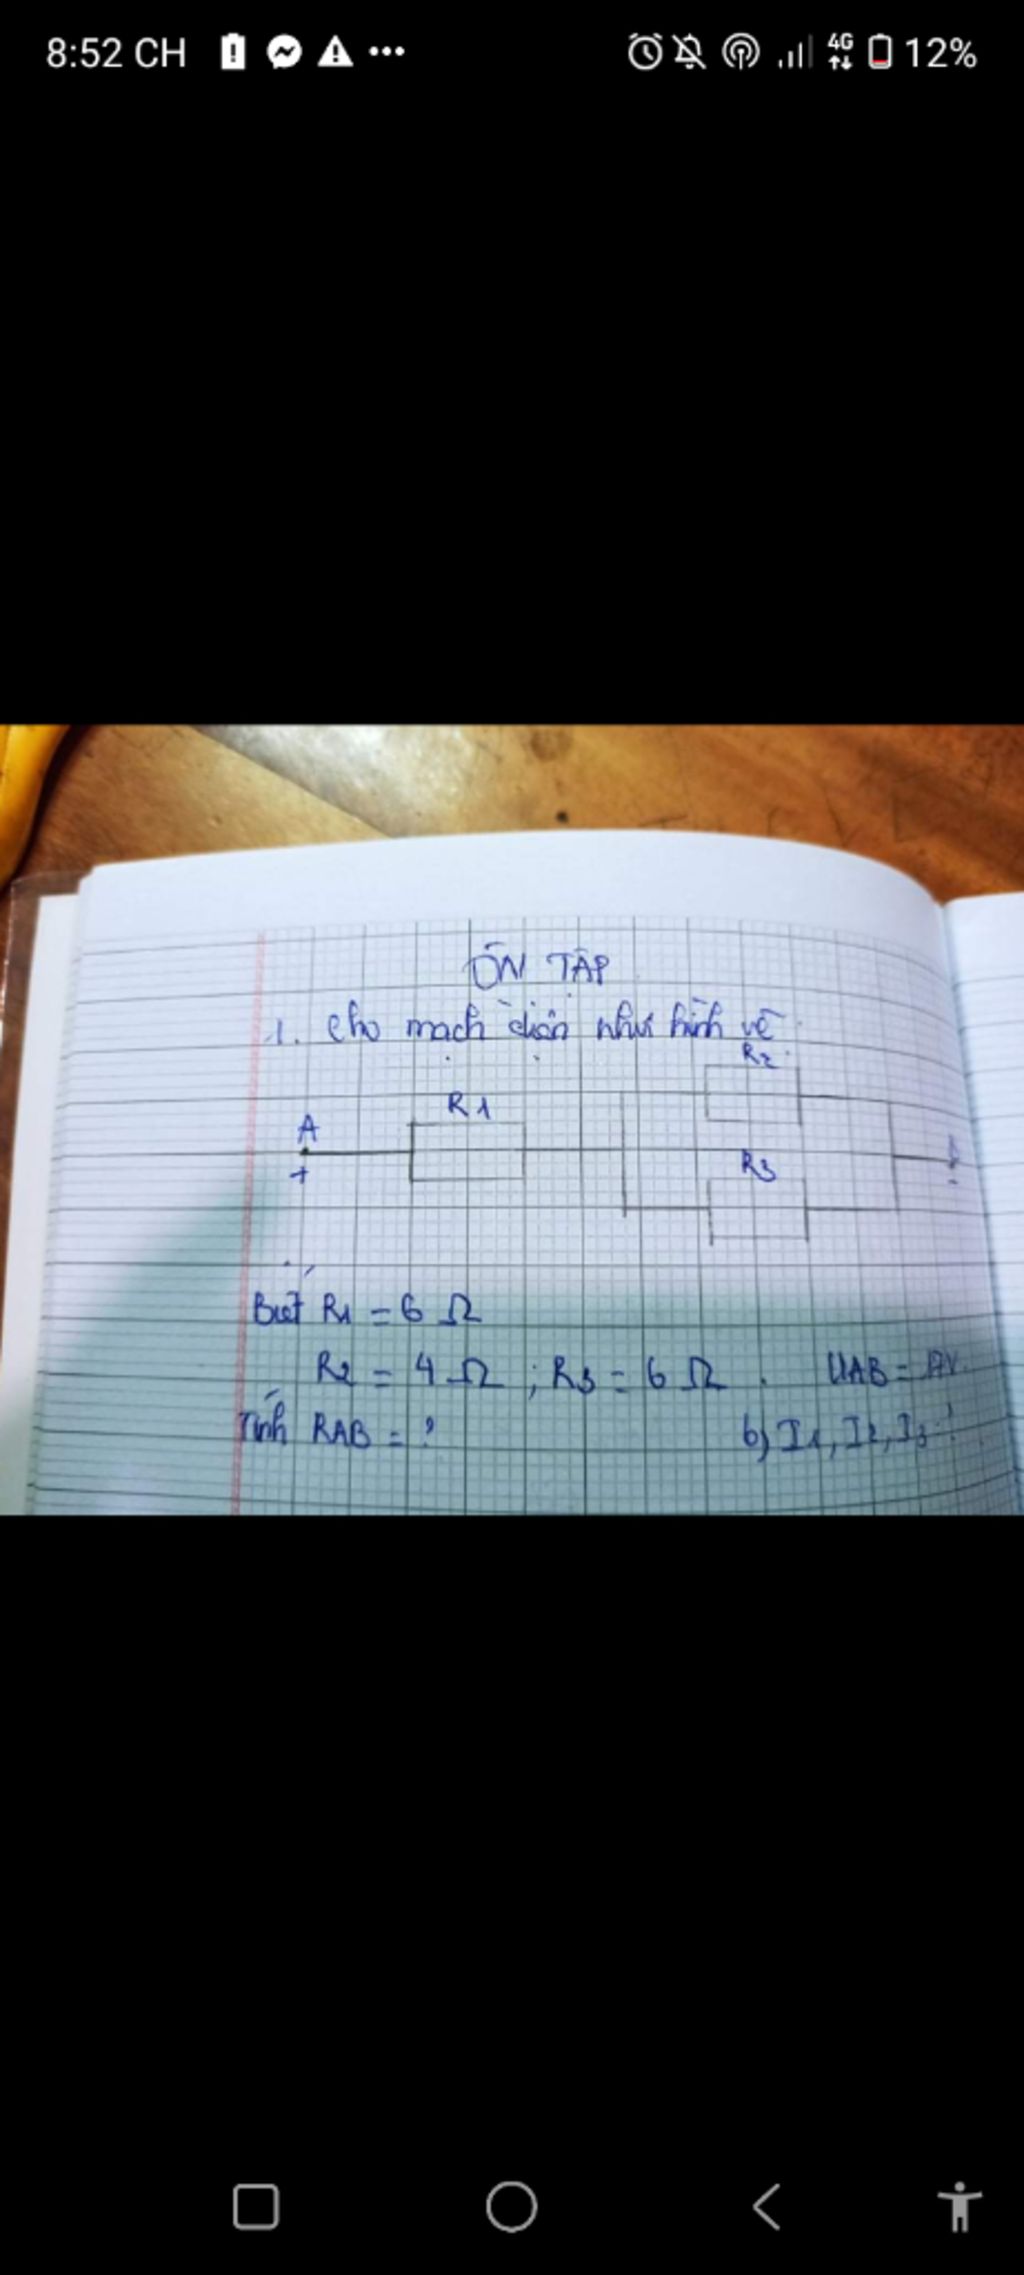 8:52 CH
4G
12%
ÔN TẬP
1. Cho mạch điện như hình vẽ
R2
R1
A
R3
+
-
Biết R1 = 6 Ω
R2 = 4 Ω ; R3 = 6 Ω . UAB =
Tính RAB = ?
b) I1, I2, I3 ?